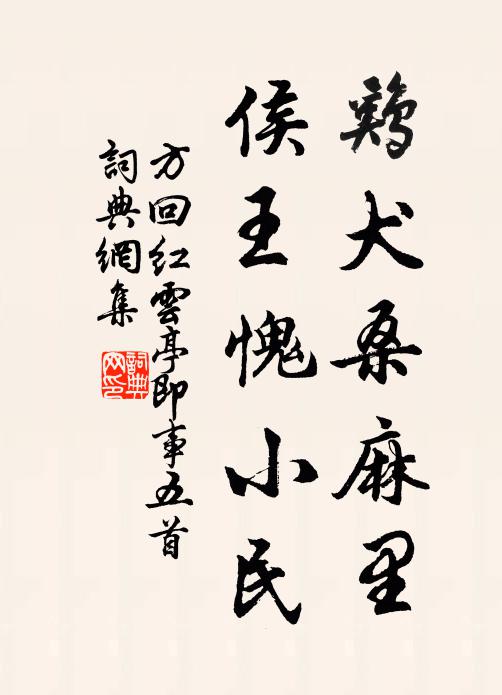 鷄犬桑麻里
侯王愧小民
方回紅雲亭即事五首
詞典網集
詞典网印